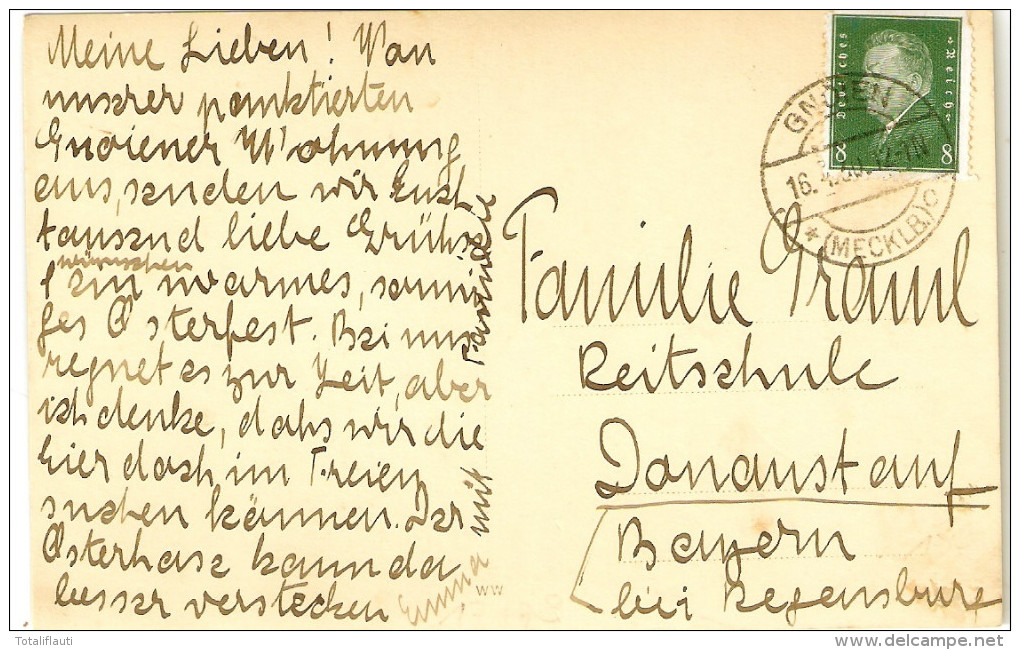 Meine Lieben! Von
unserer punktierten
Gnoiener Wohnung
aus, senden wir Euch
tausend liebe Grühse
wünschen
ein warmes, sonni
ges Osterfest. Bei uns
regnet es zur Zeit, aber
ich denke, dahs wir die
Eier doch im Freien
suchen können. Der
Osterhase kann da
besser verstecken
Emma mit Familie
Deutsches Reich
8 8
GNOIEN
16.
(MECKLB) c
Familie
Reitschule
Donaustauf
Bayern
bei Regensburg
ww
Totaliflauti
www.delcampe.net